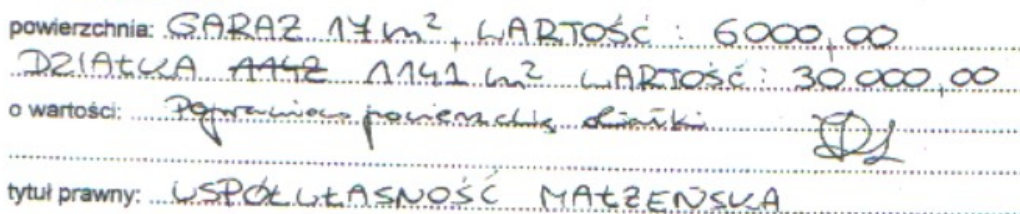 powierzchnia: GARAŻ 17 m², WARTOŚĆ : 6000,00
DZIAŁKA 1142 1141 m² WARTOŚĆ: 30.000,00
o wartości: Poprawiono powierzchnię działki
tytuł prawny: WSPÓŁWŁASNOŚĆ MAŁŻEŃSKA